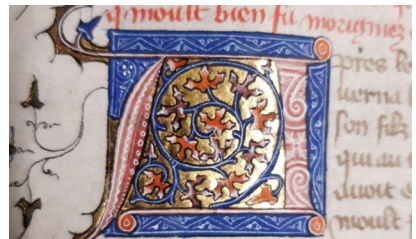 q moult bien fu morigines
A
pres
uerna
son filz
qui au
duoit
moult